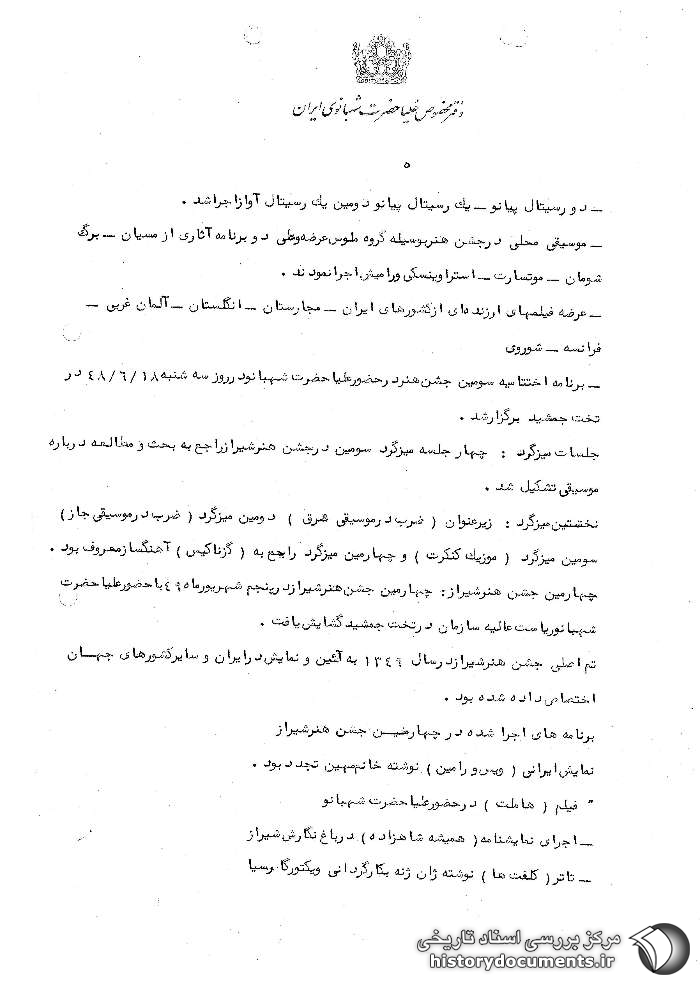 دفتر مخصوص علیاحضرت شهبانوی ایران
۵
ـ دو رسیتال پیانو ـ یك رسیتال پیانو دومین یك رسیتال آواز اجرا شد .
ـ موسیقی محلی درجشن هنربوسیله گروه طوس عرضه وطی دو برنامه آثاری از مسیان ـ برگ
شومان ـ موتسارت ـ استراوینسکی ورامیش اجرا نمودند .
ـ عرضه فیلمهای ارزنده‌ای ازکشورهای ایران ـ مجارستان ـ انگلستان ـ آلمان غربی ـ
فرانسه ـ شوروی
ـ برنامه اختتامیه سومین جشن هنر درحضورعلیاحضرت شهبانو درروز سه شنبه ۴۸/۶/۱۸ در
تخت جمشید برگزارشد .
جلسات میزگرد : چهار جلسه میزگرد سومین درجشن هنرشیراز راجع به بحث و مطالعه درباره
موسیقی تشکیل شد .
نخستین میزگرد : زیرعنوان ( ضرب درموسیقی شرق ) دومین میزگرد ( ضرب درموسیقی جاز )
سومین میزگرد ( موزیك کنکرت ) و چهارمین میزگرد راجع به ( گزناکیس ) آهنگساز معروف بود .
چهارمین جشن هنرشیراز : چهارمین جشن هنرشیراز درپنجم شهریورماه ۴۹ با حضورعلیاحضرت
شهبانو ریاست عالیه سازمان درتخت جمشید گشایش یافت .
تم اصلی جشن هنرشیراز درسال ۱۳۴۹ به آئین و نمایش درایران و سایرکشورهای جهـان
اختصاص داده شده بود .
برنامه های اجرا شده در چهارمیـن جشن هنرشیراز
نمایش ایرانی ( ویس و رامین ) نوشته خانم مهین تجدد بود .
" فیلم ( هاملت ) درحضورعلیاحضرت شهبانو
ـ اجرای نمایشنامه ( همیشه شاهزاده ) درباغ نگارش شیراز
ـ تاتر ( کلفت ها ) نوشته ژان ژنه بکارگردانی ویکتورگارسیا
مرکز بررسی اسناد تاریخی
historydocuments.ir